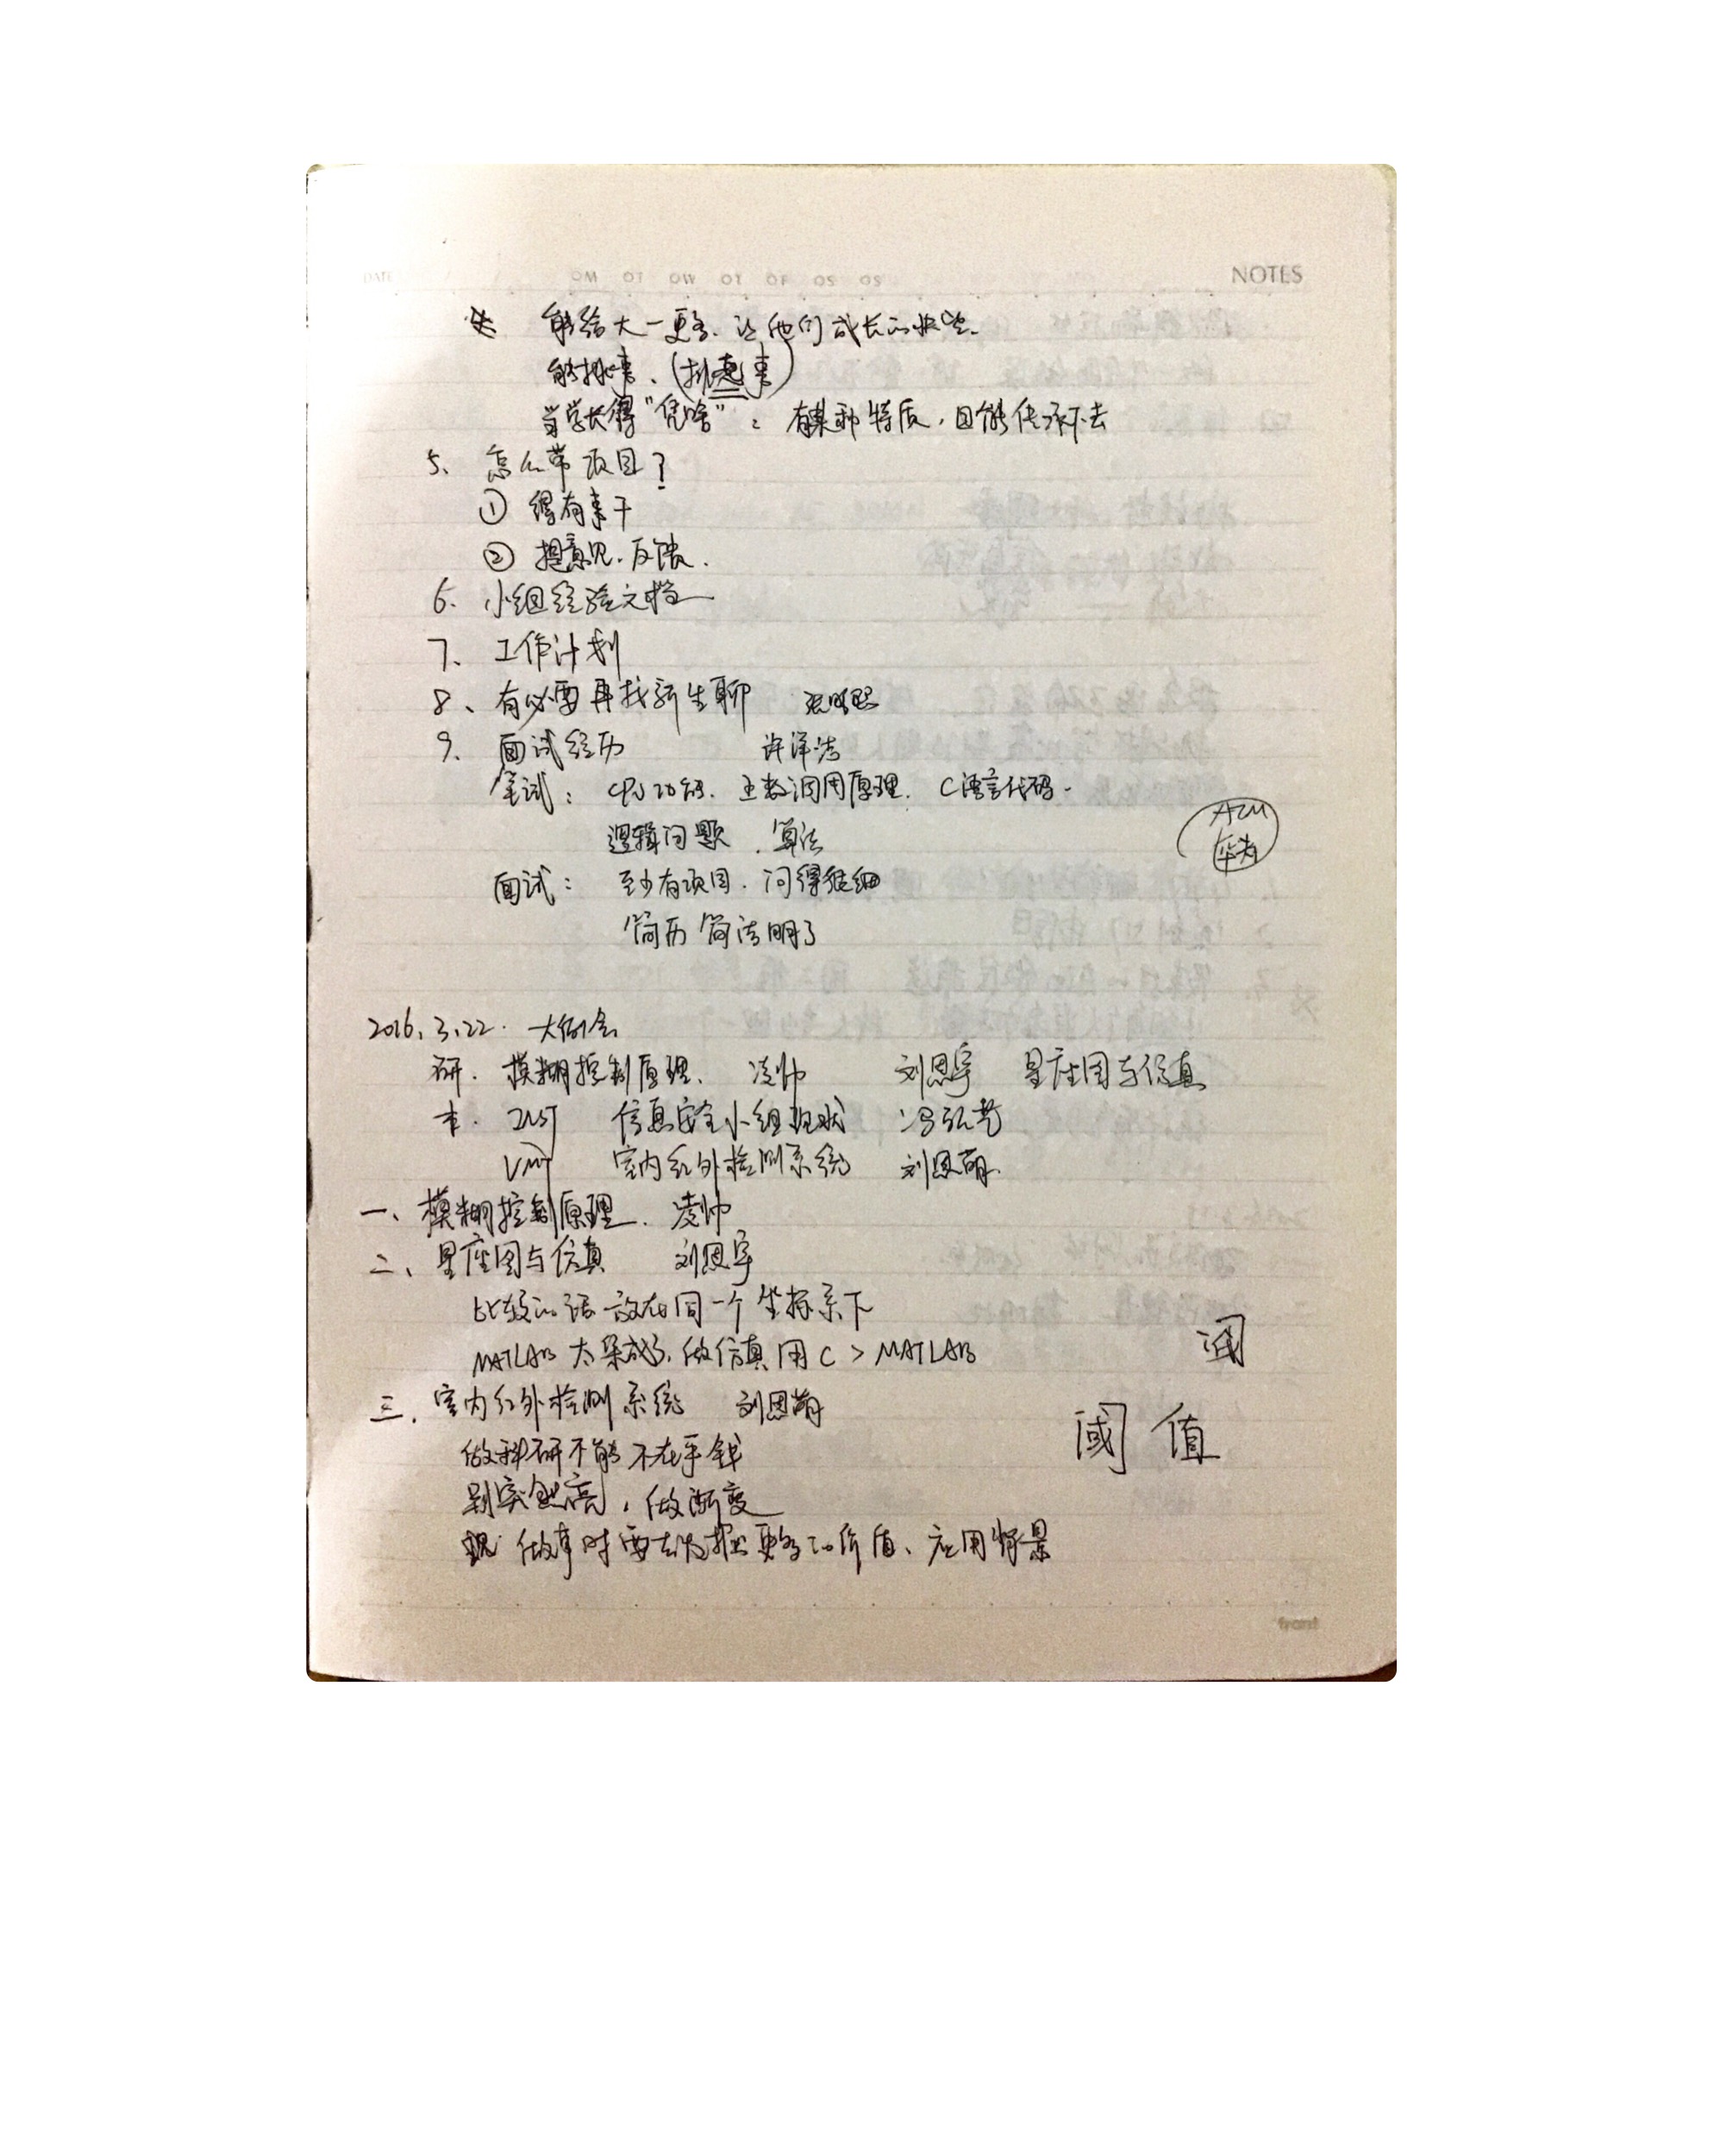 NOTES
能给大一更多、让他们成长的状态.
能挑事、(抗事)
当学长得"凭啥": 有某种特质,且能传承下去
5、怎么带项目?
① 得有事干
② 提意见、反馈.
6. 小组经验文档
7、工作计划
8、有必要再找新生聊
9. 面试经历 许泽浩
笔试: CPU 功能. 函数调用原理. C语言代码.
逻辑问题、算法
ACM
华为
面试: 至少有项目. 问得很细
简历 简洁明了
2016.3.22. 大例会
研. 模糊控制原理、凌帅 刘恩宇 星座图与仿真
本. INST 信息安全小组现状 冯弘
室内红外检测系统 刘恩萌.
一、模糊控制原理. 凌帅
二、星座图与仿真 刘恩宇
比较的话放在同一个坐标系下
MATLAB 太集成了, 做仿真用C > MATLAB
三. 室内红外检测系统 刘恩萌
阈 值
做科研不能不在乎钱
别突然高, 做渐变
做事时要去发掘更多的价值、应用背景